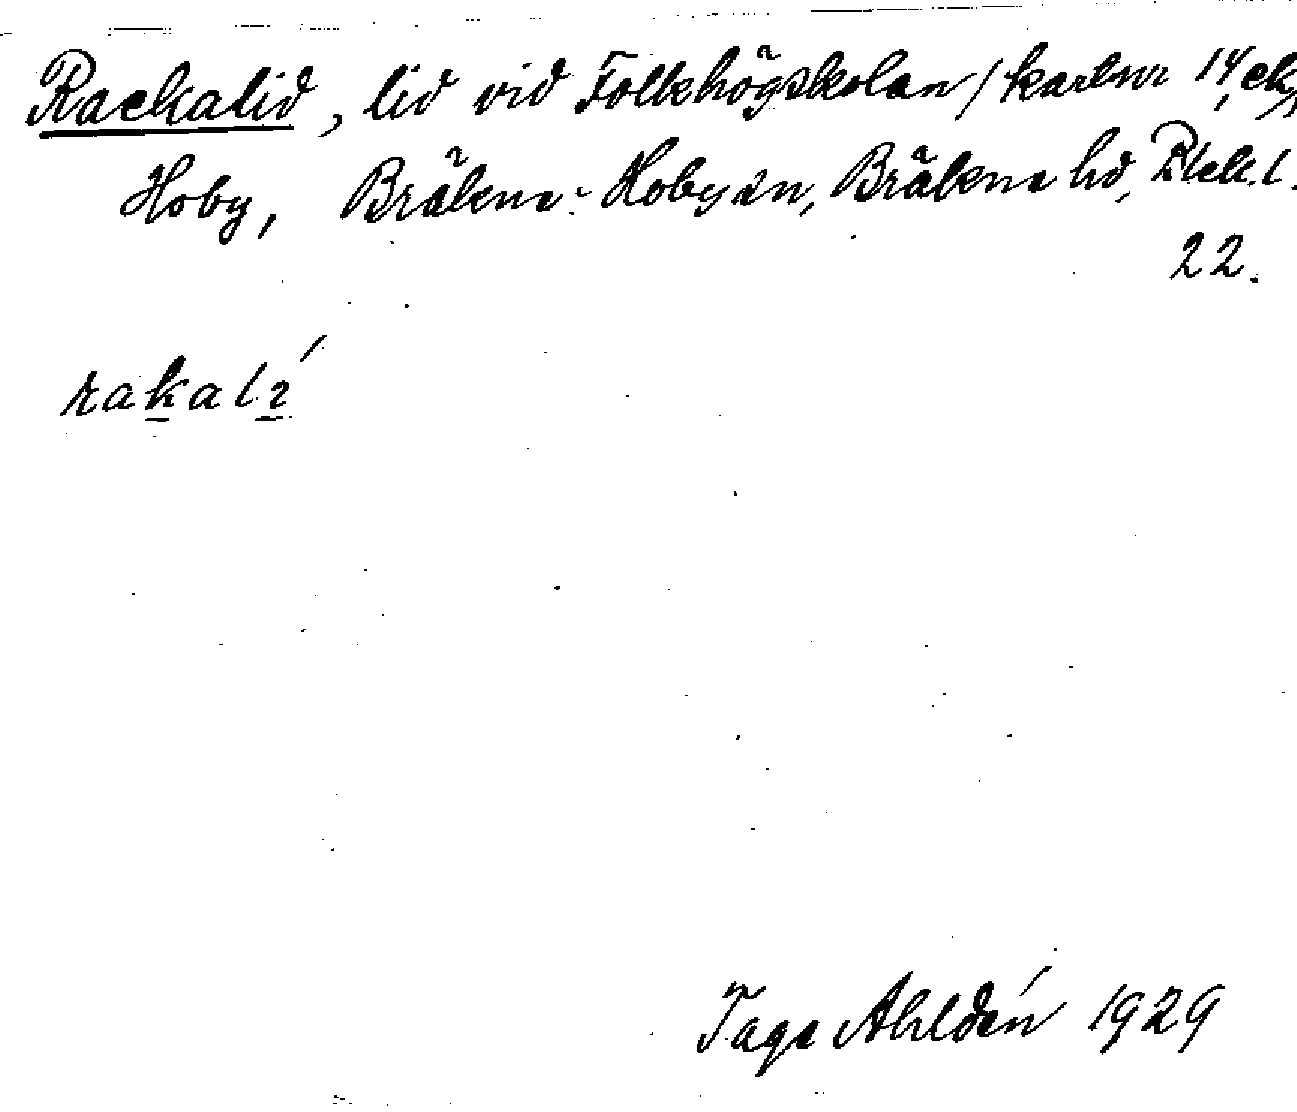 Rackalid, lid vid Folkhögskolan / kartnr 14, ek,
Hoby, Bräkne-Hoby sn, Bräkne hd, Blek. l.
22.
rakalı́
Tage Ahldén 1929